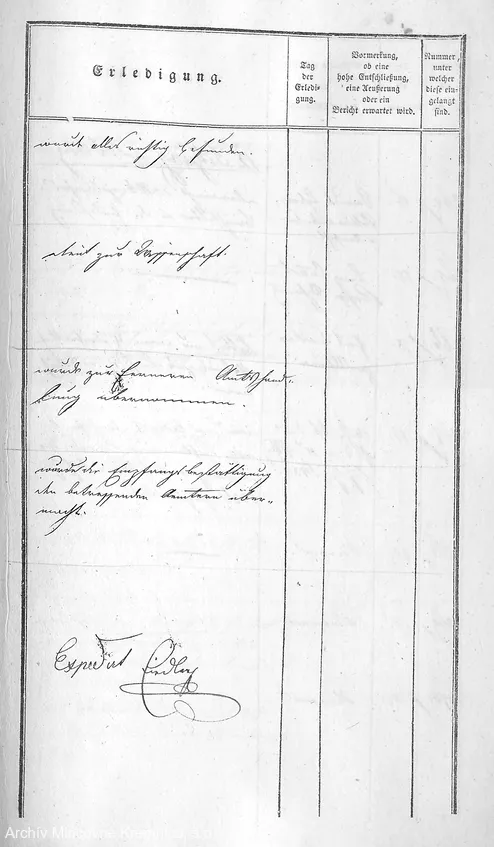 Erledigung.
Tag
der
Erledi-
gung.
Vormerkung,
ob eine
hohe Entschließung,
eine Aeußerung
oder ein
Bericht erwartet wird.
Nummer,
unter
welcher
diese ein-
gelangt
sind.
wurde alles richtig befunden.
dient zur Wissenschaft.
wurde zur ferneren Amtshand-
lung übernommen.
wurde die Empfangsbestättigung
den betreffenden Aemtern über-
macht.
Expedirt
Archiv